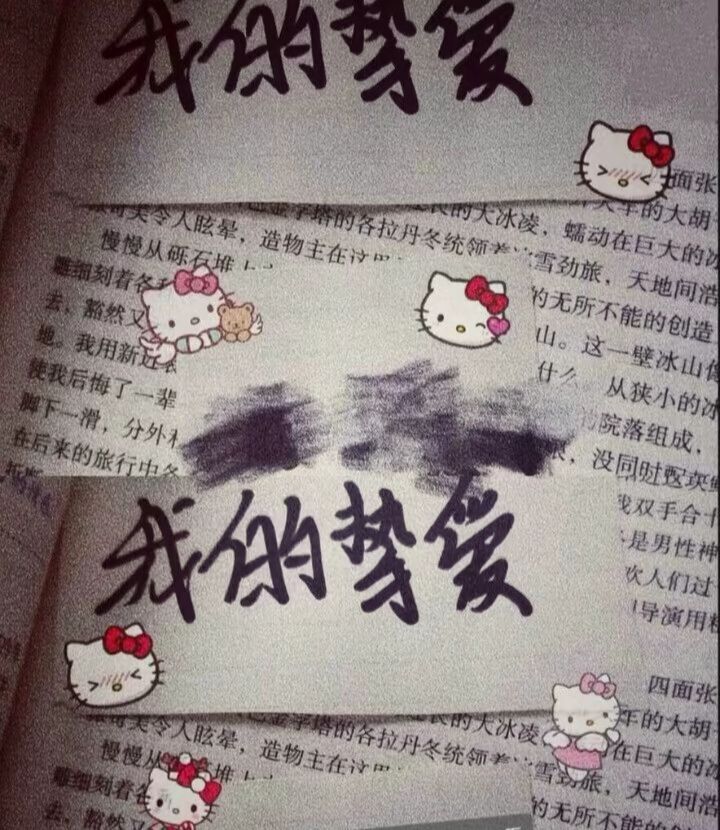 我的挚爱
面张
的大胡
美令人眩晕，造物主在这里
金字塔的各拉丹冬统领着
的大冰凌，蠕动在巨大的冰
慢慢从砾石堆上
雪劲旅，天地间浩
雕细刻着各
的无所不能的创造
去，豁然又
山。这一壁冰山
地。我用新近
什么。从狭小的冰
使我后悔了一辈
院落组成，
脚下一滑，分外
没同时
在后来的旅行中
我的挚爱
双手合十
是男性神
欢人们过
导演用
四面张
的大胡
美令人眩晕，造物主在这
金字塔的各拉丹冬统领着
的大冰凌
在巨大的冰
慢慢从
雪劲旅，天地间浩
雕细刻着
的无所不能的创造
去，豁然又